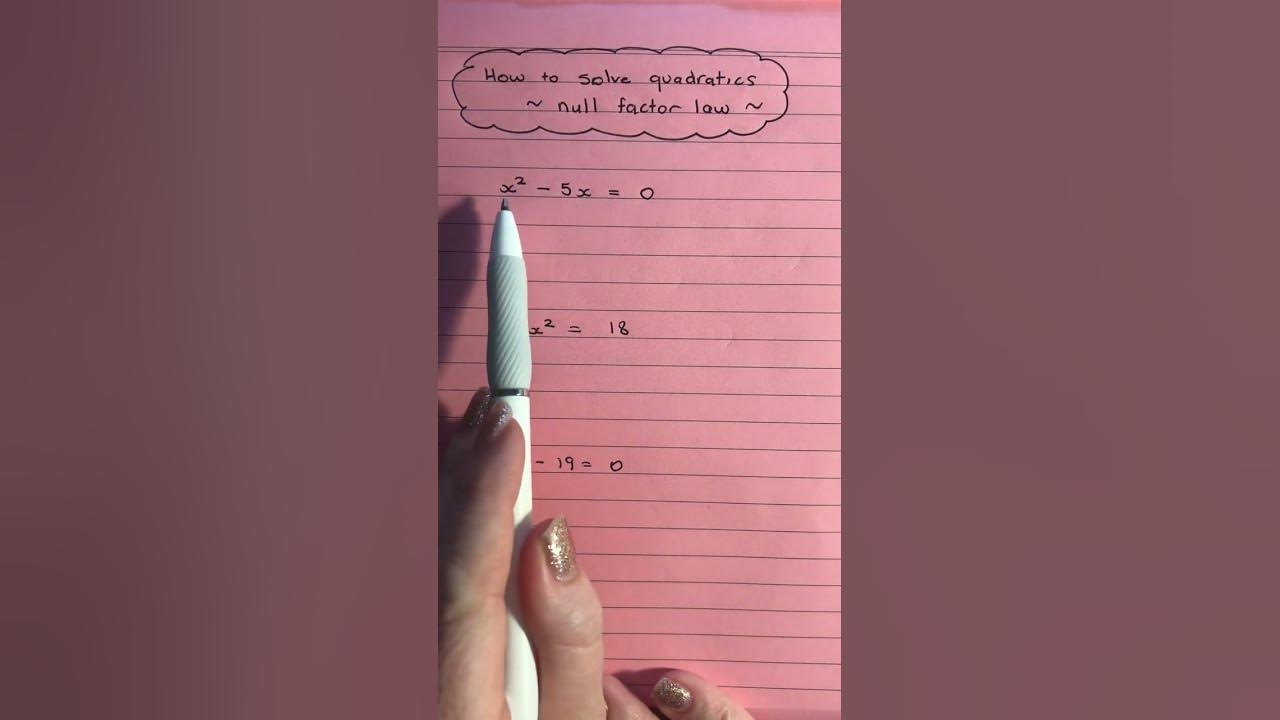 How to solve quadratics
~ null factor law ~
x² - 5x = 0
x² = 18
- 19 = 0